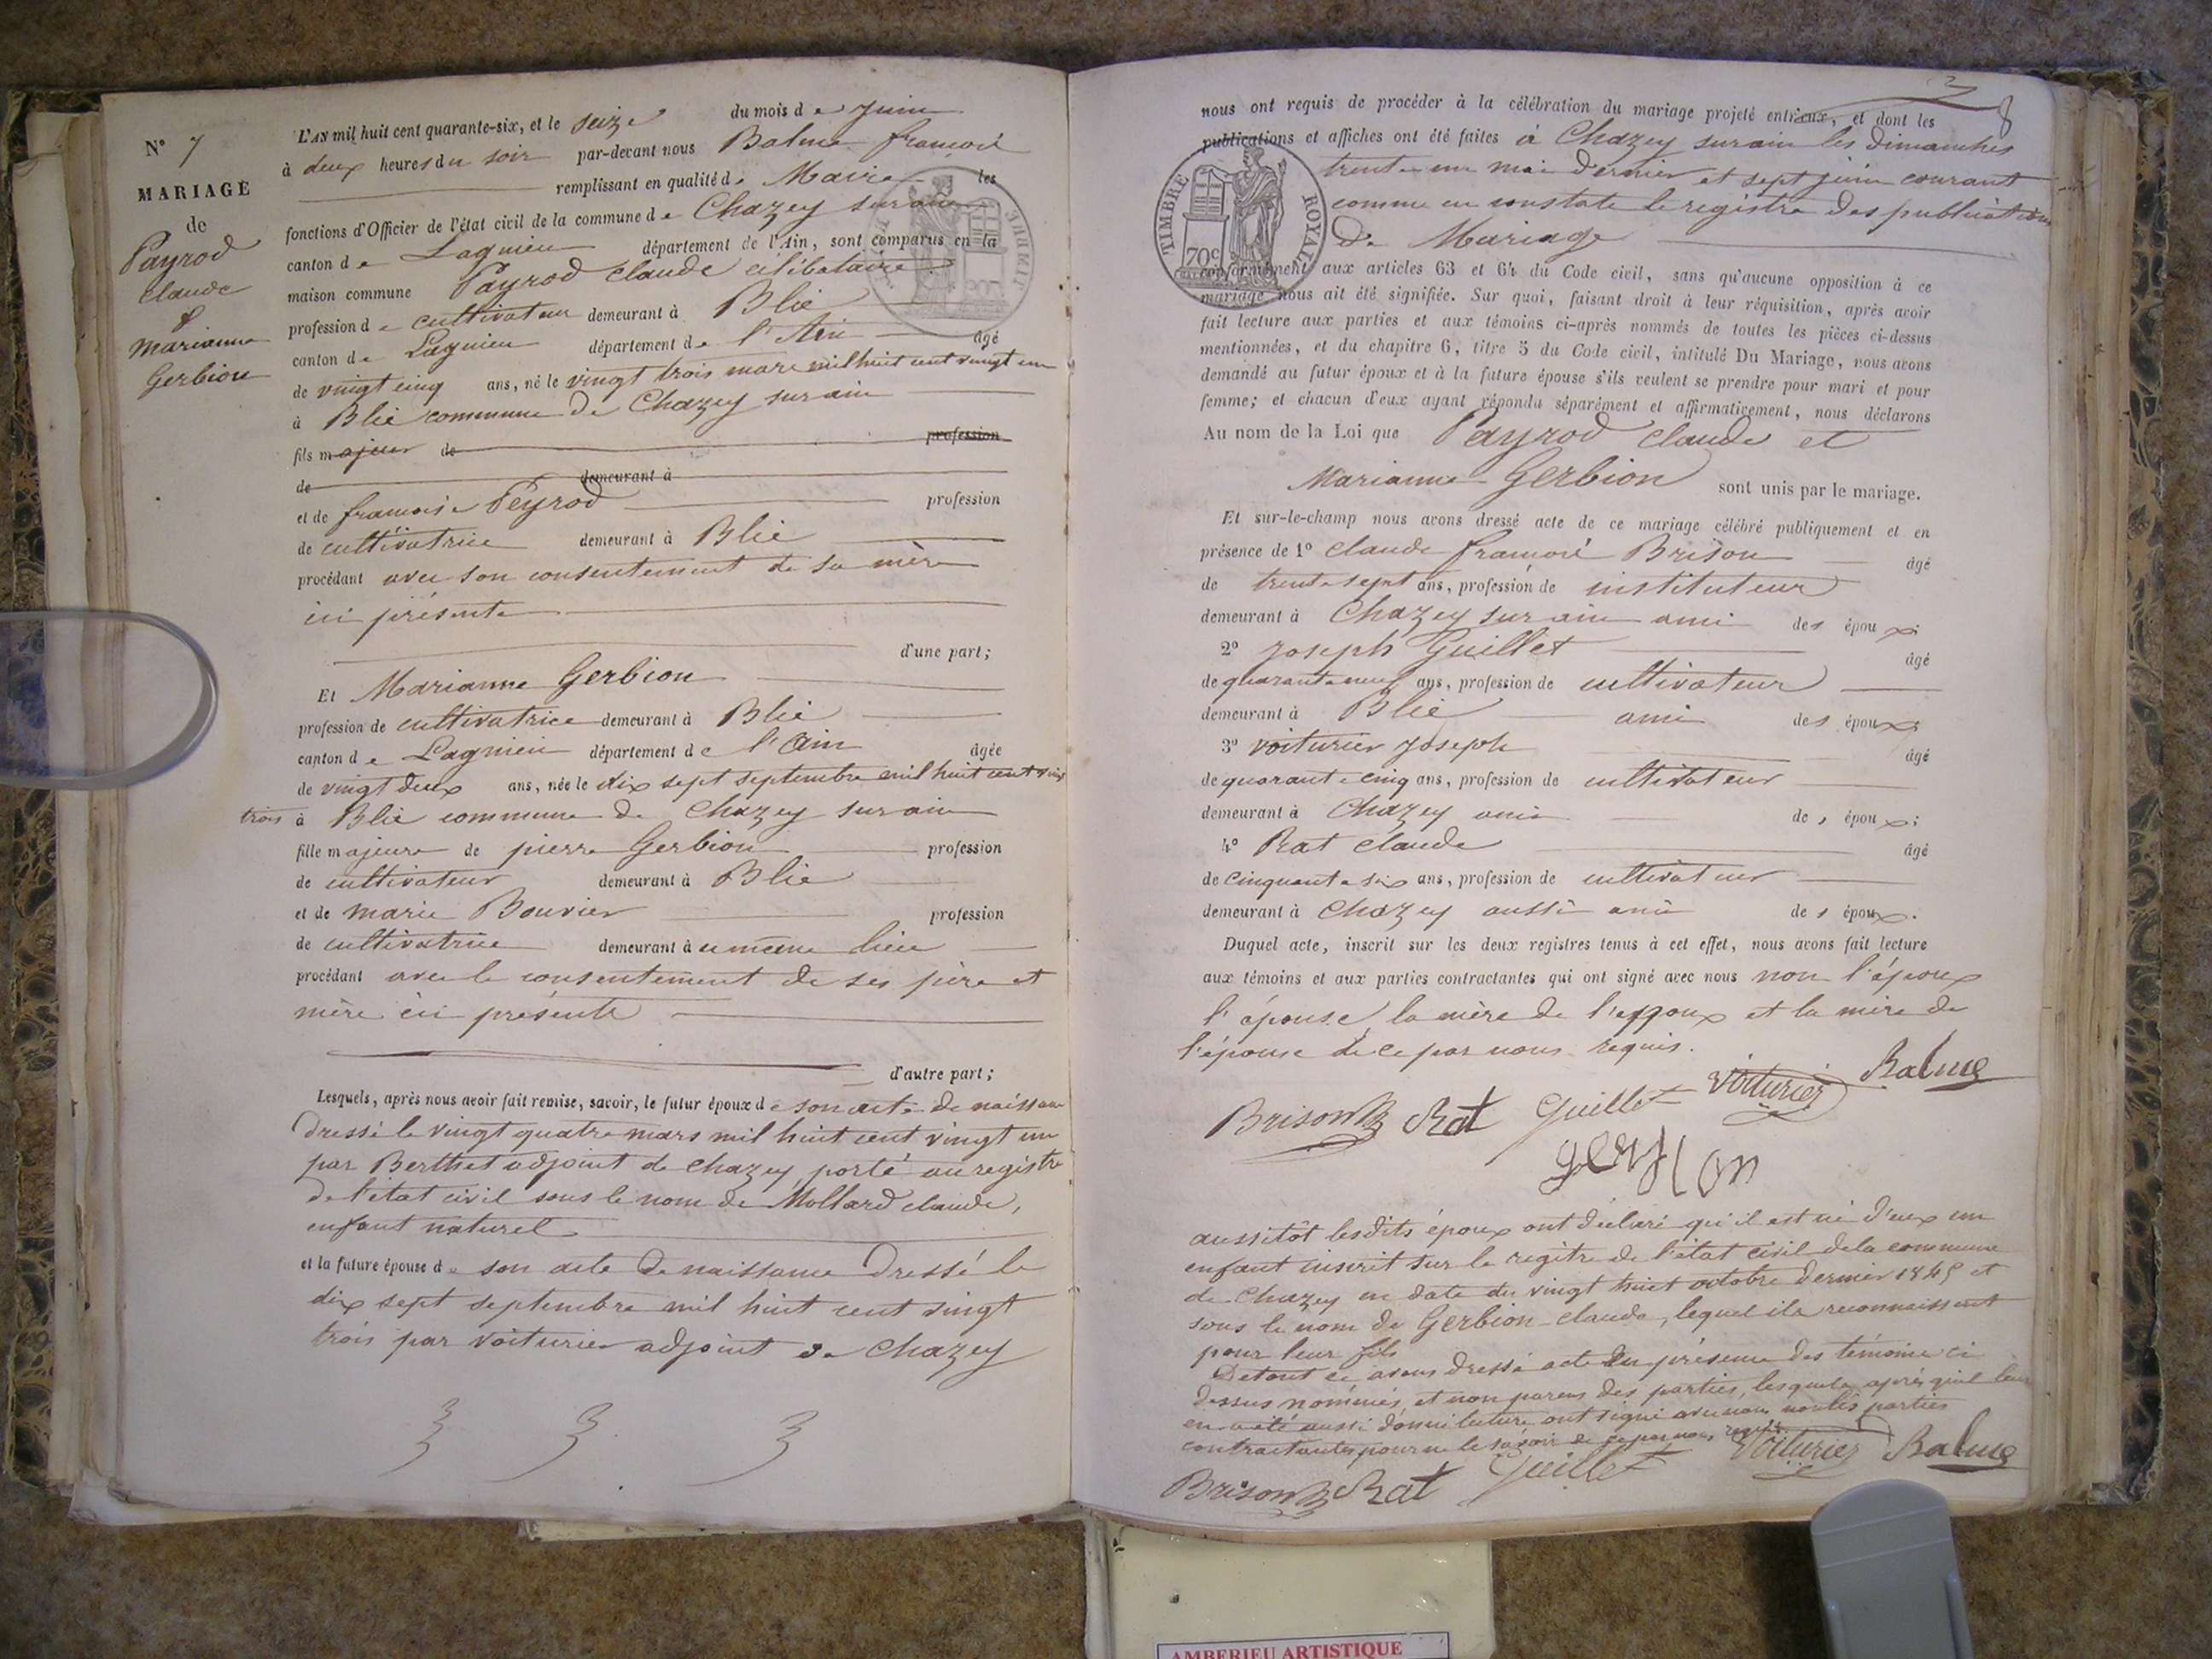 N° 7
MARIAGE
de
Payrod
Claude
&
Marianne
Gerbion
L'AN mil huit cent quarante-six, et le seize du mois de Juin
à deux heures du soir par-devant nous Balme françois
remplissant en qualité de Maire les
fonctions d'Officier de l'état civil de la commune de Chazey sur ain
canton de Lagnieu département de l'Ain, sont comparus en la
maison commune Payrod Claude célibataire
profession de cultivateur demeurant à Blie
canton de Lagnieu département de l'Ain âgé
de vingt cinq ans, né le vingt trois mars mil huit cent vingt un
à Blie commune de Chazey sur ain
fils majeur de profession
de demeurant à
et de francoise Peyrod profession
de cultivatrice demeurant à Blie
procédant avec son consentement de sa mère
ici présente
d'une part;
Et Marianne Gerbion
profession de cultivatrice demeurant à Blie
canton de Lagnieu département de l'Ain âgée
de vingt deux ans, née le dix sept septembre mil huit cent vingt
trois à Blie commune de Chazey sur ain
fille majeure de pierre Gerbion profession
de cultivateur demeurant à Blie
et de marie Bouvier profession
de cultivatrice demeurant à u meme lieu
procédant avec le consentement de ses père et
mère ici présents
d'autre part;
Lesquels, après nous avoir fait remise, savoir, le futur époux de son acte de naissance
dressé le vingt quatre mars mil huit cent vingt un
par Berthet adjoint de Chazey porté au registre
de l'état civil sous le nom de Mollard claude,
enfant naturel
et la future épouse de son acte de naissance dressé le
dix sept septembre mil huit cent vingt
trois par voiturier adjoint de Chazey
nous ont requis de procéder à la célébration du mariage projeté entr'eux, et dont les
publications et affiches ont été faites à Chazey sur ain les dimanches
trente un mai dernier et sept juin courant
comme en constate le registre des publications
de Mariage
TIMBRE ROYAL
70c
conformément aux articles 63 et 64 du Code civil, sans qu'aucune opposition à ce
mariage nous ait été signifiée. Sur quoi, faisant droit à leur réquisition, après avoir
fait lecture aux parties et aux témoins ci-après nommés de toutes les pièces ci-dessus
mentionnées, et du chapitre 6, titre 5 du Code civil, intitulé Du Mariage, nous avons
demandé au futur époux et à la future épouse s'ils veulent se prendre pour mari et pour
femme; et chacun d'eux ayant répondu séparément et affirmativement, nous déclarons
Au nom de la Loi que Payrod Claude et
Marianne Gerbion sont unis par le mariage.
Et sur-le-champ nous avons dressé acte de ce mariage célébré publiquement et en
présence de 1° Claude françois Brison âgé
de trente sept ans, profession de instituteur
demeurant à Chazey sur ain ami des époux;
2° Joseph Guillet âgé
de quarante neuf ans, profession de cultivateur
demeurant à Blie ami des époux;
3° Voiturier Joseph âgé
de quarante cinq ans, profession de cultivateur
demeurant à Chazey ami des époux;
4° Rat Claude âgé
de cinquante six ans, profession de cultivateur
demeurant à Chazey aussi ami des époux.
Duquel acte, inscrit sur les deux registres tenus à cet effet, nous avons fait lecture
aux témoins et aux parties contractantes qui ont signé avec nous non l'époux
l'épouse, la mère de l'époux et la mère de
l'épouse de ce par nous requis.
Voiturier Balme
Brison Rat Guillet
gerbion
aussitôt lesdits époux ont déclaré qu'il est né d'eux un
enfant inscrit sur le regitre de l'état civil de la commune
de Chazey en date du vingt huit octobre dernier 1845 et
sous le nom de Gerbion claude, lequel ils reconnaissent
pour leur fils
De tout ce avons dressé acte en présence des témoins ci
dessus nommés, et non parens des parties, lesquels après qu'il leur
en a été aussi donné lecture ont signé avec nous non les parties
contractantes pour ne le savoir de ce par nous requis
Voiturier Balme
Brison Rat Guillet
AMBERIEU ARTISTIQUE